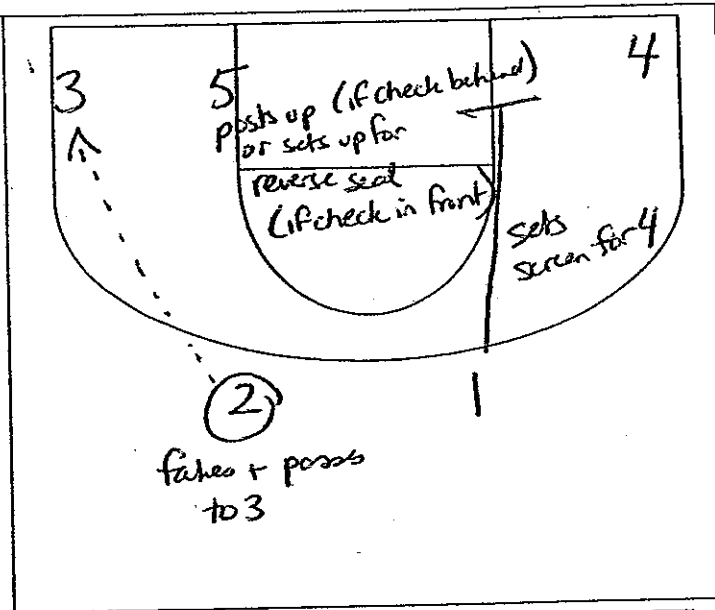 3
5
4
posts up (if check behind)
or sets up for
reverse seal
(if check in front)
sets
screen for 4
2
1
fakes + passes
to 3